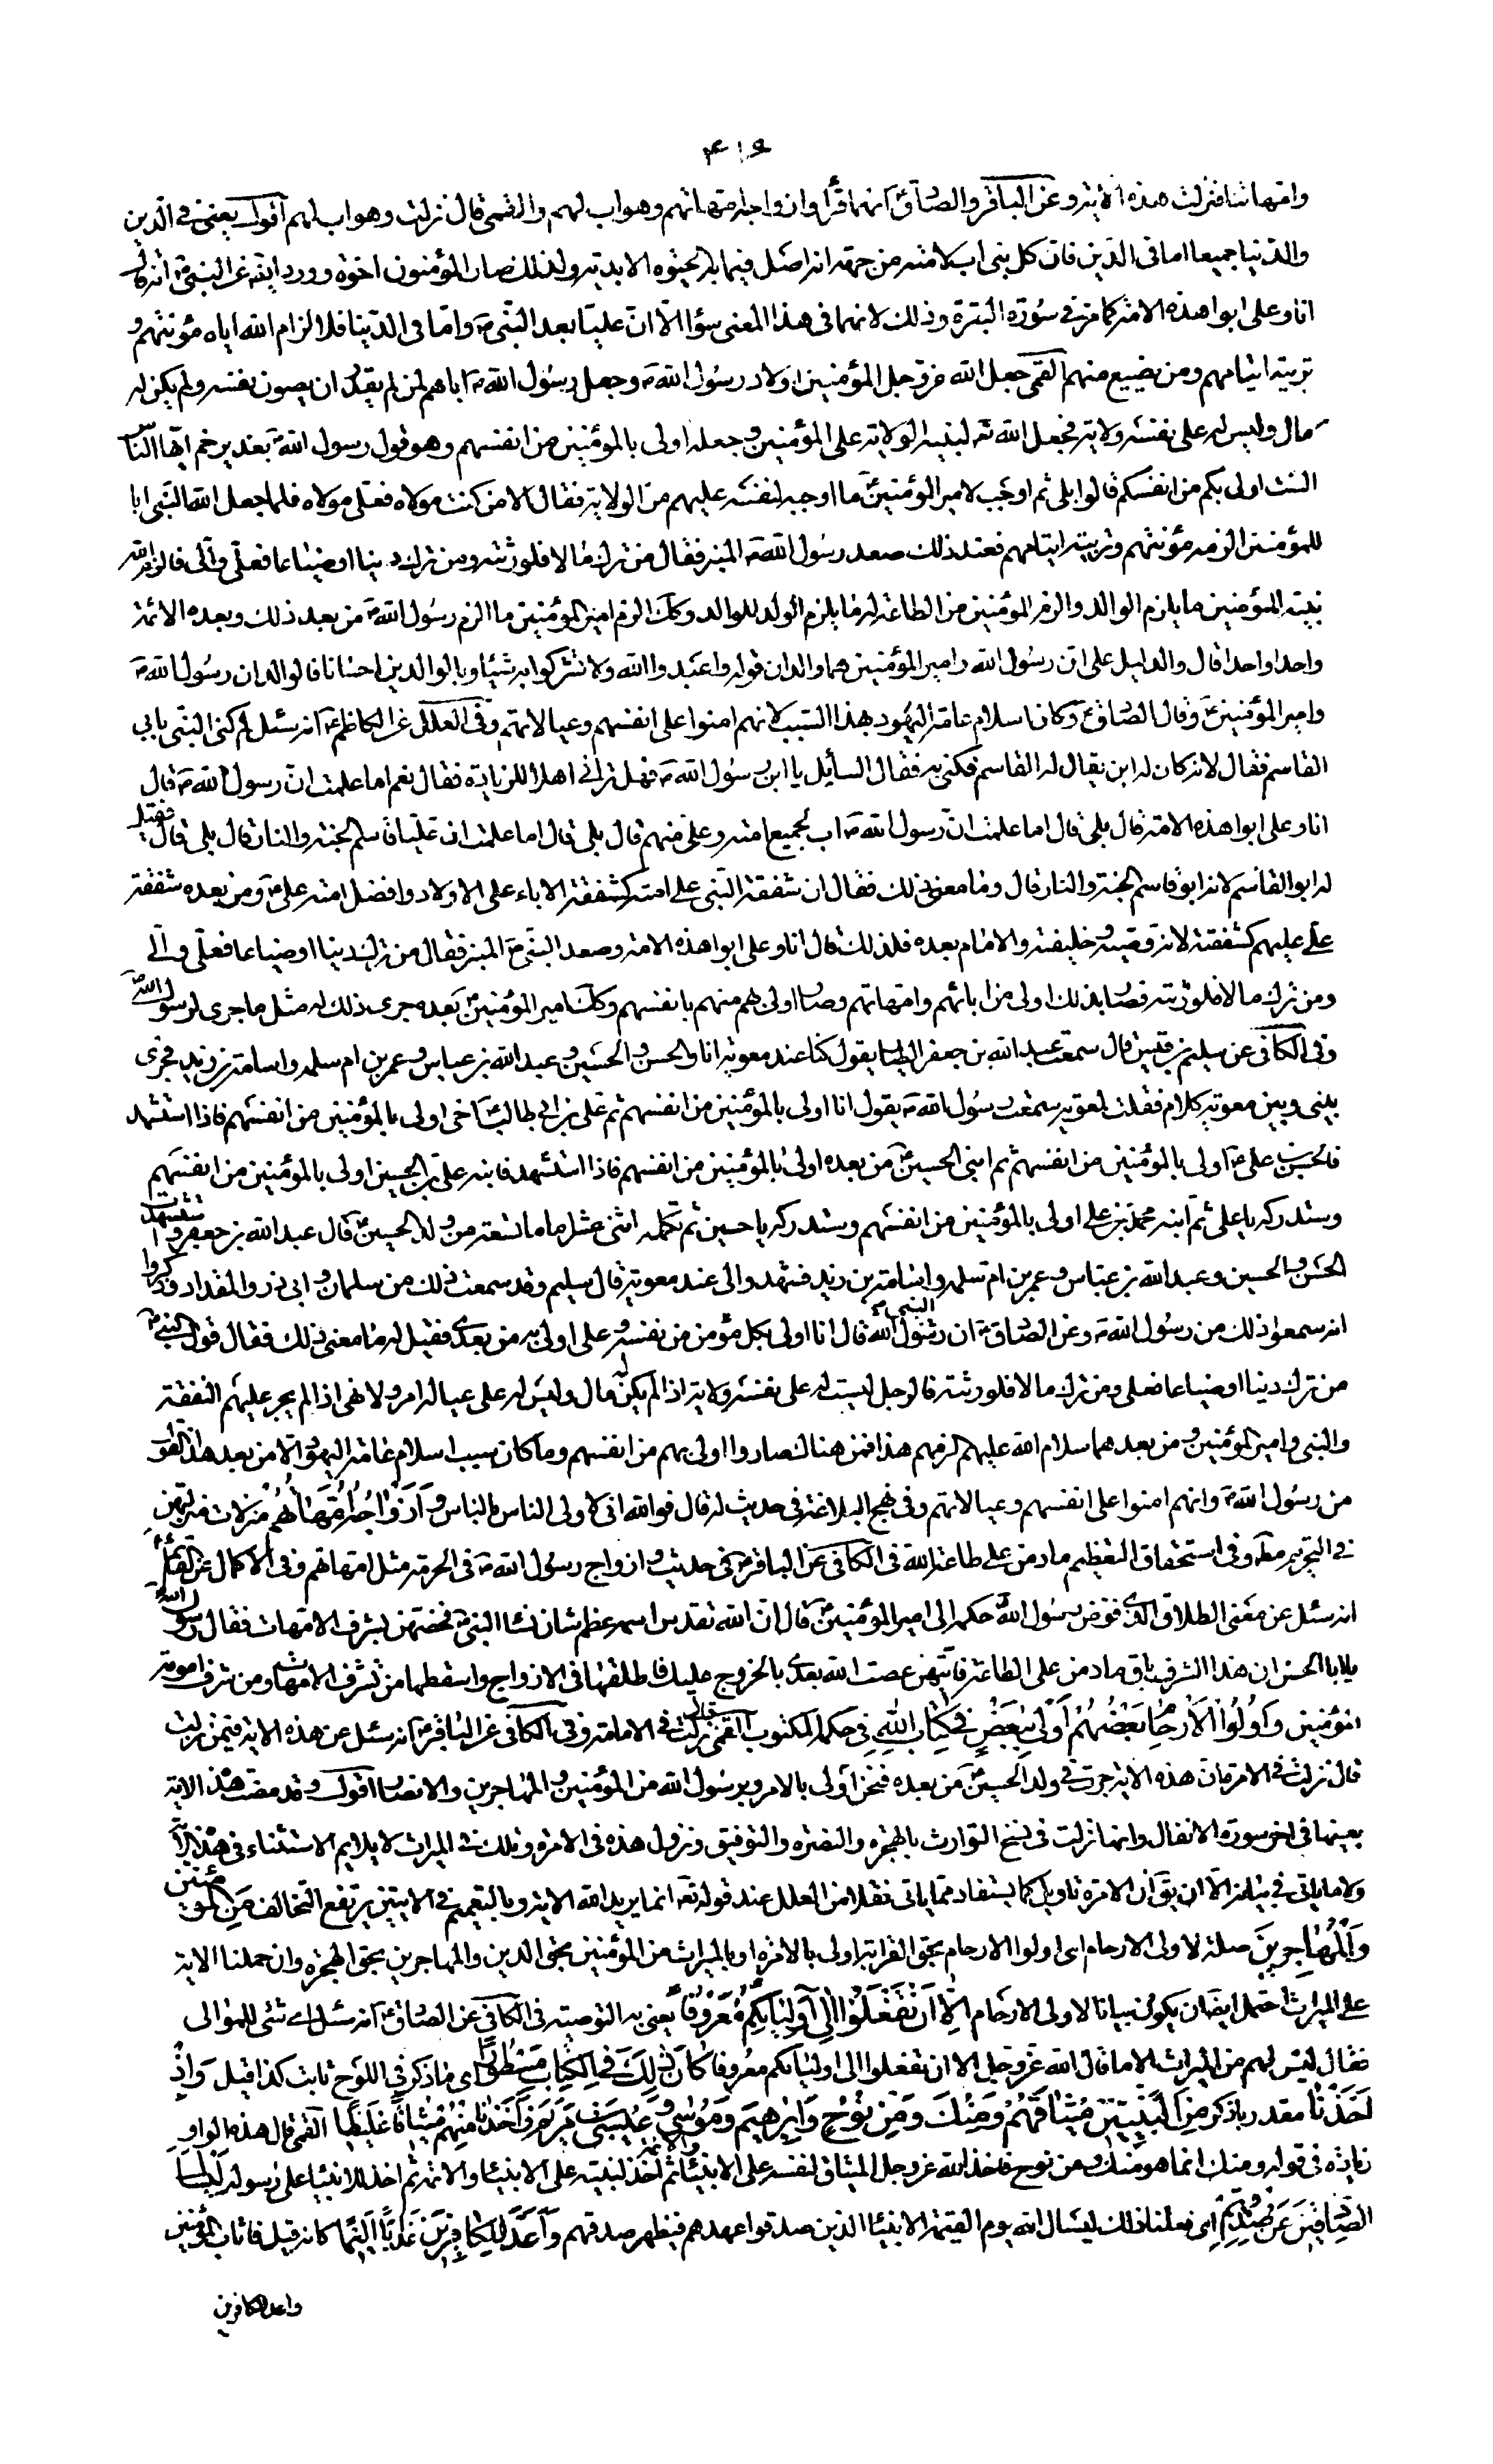 ۴۱۶
وامهاتنا فنزلت هذه الاية وعن الباقر والصادق ع انهما قرأا وازواجه امهاتهم وهو اب لهم والقمى قال نزلت وهو اب لهم اقول يعنى فى الدين
والدنيا جميعا اما فى الدين فان كل نبى اب لامته من جهة انه اصل فيما به الحيوة الابدية ولذلك صار المؤمنون اخوة وورد ايضا عن النبى ص انه قال
انا وعلى ابوا هذه الامة كما مر فى سورة البقرة وذلك لانهما فى هذا المعنى سواء الا ان عليا بعد النبى ص واما فى الدنيا فلالزام الله اياه مؤونتهم و
تربية ايتامهم ومن يضيع منهم القمى جعل الله عز وجل المؤمنين اولاد رسول الله ص وجعل رسول الله ص اباهم لمن لم يقدر ان يصون نفسه ولم يكن له
مال وليس له على نفسه ولاية فجعل الله تع لنبيه الولاية على المؤمنين وجعله اولى بالمؤمنين من انفسهم وهو قول رسول الله ص بغدير خم ايها الناس
الست اولى بكم من انفسكم قالوا بلى ثم اوجب لامير المؤمنين ع ما اوجبه لنفسه عليهم من الولاية فقال الا من كنت مولاه فعلى مولاه فلما جعل الله النبى ابا
للمؤمنين الزمه مؤونتهم وتربية ايتامهم فعند ذلك صعد رسول الله ص المنبر فقال من ترك مالا فلورثته ومن ترك دينا او ضياعا فعلى والى فالزم الله
نبيه للمؤمنين ما يلزم الوالد والزم المؤمنين من الطاعة له ما يلزم الولد للوالد وكك الزم امير المؤمنين ما الزم رسول الله ص من بعد ذلك وبعده الائمة
واحدا واحدا قال والدليل على ان رسول الله وامير المؤمنين هما والدان قوله واعبدوا الله ولا تشركوا به شيئا وبالوالدين احسانا فالوالدان رسول الله ص
وامير المؤمنين ع وقال الصادق ع وكان اسلام عامة اليهود بهذا السبب لانهم امنوا على انفسهم وعيالاتهم وفى العلل عن الكاظم ع انه سئل لم كنى النبى بابى
القاسم فقال لانه كان له ابن يقال له القاسم فكنى به فقال السائل يا ابن رسول الله ص فهل ترانى اهلا للزيادة فقال نعم اما علمت ان رسول الله ص قال
انا وعلى ابوا هذه الامة قال بلى قال اما علمت ان رسول الله ص اب لجميع امته وعلى منهم قال بلى قال اما علمت ان عليا قاسم الجنة والنار قال بلى قال فقيل
له ابو القاسم لانه ابو قاسم الجنة والنار قال وما معنى ذلك فقال ان شفقة النبى على امته كشفقة الاباء على الاولاد وافضل امته على ع ومن بعده شفقة
على عليهم كشفقته لانه وصيه وخليفته والامام بعده فلذلك قال انا وعلى ابوا هذه الامة وصعد النبى ص المنبر فقال من ترك دينا او ضياعا فعلى والى
ومن ترك مالا فلورثته فصار بذلك اولى من ابائهم وامهاتهم وصار اولى بهم منهم بانفسهم وكك امير المؤمنين ع بعده جرى ذلك له مثل ما جرى لرسول الله ص
وفى الكافى عن سليم بن قيس قال سمعت عبد الله بن جعفر الطيار يقول كنا عند معوية انا والحسن والحسين وعبد الله بن عباس وعمر بن ام سلمه واسامة بن زيد فجرى
بينى وبين معوية كلام فقلت لمعوية سمعت رسول الله ص يقول انا اولى بالمؤمنين من انفسهم ثم على بن ابى طالب ع اخى اولى بالمؤمنين من انفسهم فاذا استشهد
فالحسن بن على ع اولى بالمؤمنين من انفسهم ثم ابنى الحسين ع من بعده اولى بالمؤمنين من انفسهم فاذا استشهد فابنه على بن الحسين اولى بالمؤمنين من انفسهم
وستدركه يا على ثم ابنه محمد بن على اولى بالمؤمنين من انفسهم وستدركه يا حسين ثم تكمله اثنى عشر اماما تسعة من ولد الحسين ع قال عبد الله بن جعفر واستشهدت
الحسن والحسين وعبد الله بن عباس وعمر بن ام سلمه واسامة بن زيد فشهدوا لى عند معوية قال سليم وقد سمعت ذلك من سلمان وابى ذر والمقداد وذكروا
انه سمعوا ذلك من رسول الله ص وعن الصادق ع ان النبى ص قال انا اولى بكل مؤمن من نفسه وعلى اولى به من بعدى فقيل له ما معنى ذلك فقال قول النبى ص
من ترك دينا او ضياعا فعلى ومن ترك مالا فلورثته فالرجل ليست له على نفسه ولاية اذا لم يكن له مال وليس له على عياله امر ولا نهى اذا لم يجر عليهم النفقة
والنبى وامير المؤمنين ومن بعدهما سلام الله عليهم الزمهم هذا فمن هناك صاروا اولى بهم من انفسهم وما كان سبب اسلام عامة اليهود الا من بعد هذا القول
من رسول الله ص وانهم امنوا على انفسهم وعيالاتهم وفى نهج البلاغة فى حديث له قال فوالله انى لاولى الناس بالناس وَأَزْوَاجُهُ أُمَّهَاتُهُمْ منزلات منزلتهن
فى التحريم مط وفى استحقاق التعظيم ما دمن على طاعة الله فى الكافى عن الباقر ع فى حديث وازواج رسول الله ص فى الحرمة مثل امهاتهم وفى الاكمال عن القائم ع
انه سئل عن معنى الطلاق الذى فوض رسول الله حكمه الى امير المؤمنين ع قال ان الله تقدس اسمه عظم شان نساء النبى ص فخصهن بشرف الامهات فقال رسول الله ص
يا ابا الحسن ان هذا الشرف باق ما دمن على الطاعة فايتهن عصت الله بعدى بالخروج عليك فاطلقها فى الازواج واسقطها من تشرف الامهات ومن شرف امومة
المؤمنين وَأُولُوا الْأَرْحَامِ بَعْضُهُمْ أَوْلَى بِبَعْضٍ فِي كِتَابِ اللَّهِ فى حكمه المكتوب القمى قال نزلت فى الامامة وفى الكافى عن الباقر ع انه سئل عن هذه الاية فيمن نزلت
قال نزلت فى الامرة ان هذه الاية جرت فى ولد الحسين ع من بعده فنحن اولى بالامر وبرسول الله من المؤمنين والمهاجرين والانصار اقول وقد مضت هذه الاية
بعينها فى اخر سورة الانفال وانها نزلت فى نسخ التوارث بالهجرة والنصرة والتوفيق ونزول هذه فى الامرة وتلك فى الميراث لا يلايم الاستثناء فى هذه الاية
ولا ما ياتى فى بيانه الا ان يق ان الامرة تاويل كما يستفاد مما ياتى نقلا من العلل عند قوله تع انما يريد الله الاية وبالتعميم فى الايتين يرتفع التخالف مِنَ الْمُؤْمِنِينَ
وَالْمُهَاجِرِينَ صلة لاولى الارحام اى اولوا الارحام بحق القرابة اولى بالامرة او بالميراث من المؤمنين بحق الدين والمهاجرين بحق الهجرة وان حملنا الاية
على الميراث احتمل ايضا ان يكون بيانا لاولى الارحام إِلَّا أَنْ تَفْعَلُوا إِلَى أَوْلِيَائِكُمْ مَعْرُوفًا يعنى به التوصية فى الكافى عن الصادق ع انه سئل اى شئ للموالى
فقال ليس لهم من الميراث الا ما قال الله عز وجل الا ان تفعلوا الى اوليائكم معروفا كَانَ ذَلِكَ فِي الْكِتَابِ مَسْطُورًا اى ما ذكر فى اللوح ثابت كذا قيل وَإِذْ
أَخَذْنَا مقدر باذكر مِنَ النَّبِيِّينَ مِيثَاقَهُمْ وَمِنْكَ وَمِنْ نُوحٍ وَإِبْرَهِيمَ وَمُوسَى وَعِيسَى بْنِ مَرْيَمَ وَأَخَذْنَا مِنْهُمْ مِيثَاقًا غَلِيظًا القمى قال هذه الواو
زيادة فى قوله ومنك انما هو منك ومن نوح فاخذ الله عز وجل الميثاق لنفسه على الانبياء ثم اخذ لنبيه على الانبياء والائمة ثم اخذ للانبياء على رسوله لِيَسْأَلَ
الصَّادِقِينَ عَنْ صِدْقِهِمْ اى فعلنا ذلك ليسال الله يوم القيمة الانبياء الذين صدقوا عهدهم فيظهر صدقهم وَأَعَدَّ لِلْكَافِرِينَ عَذَابًا أَلِيمًا كانه قيل فاثاب المؤمنين
واعد للكافرين